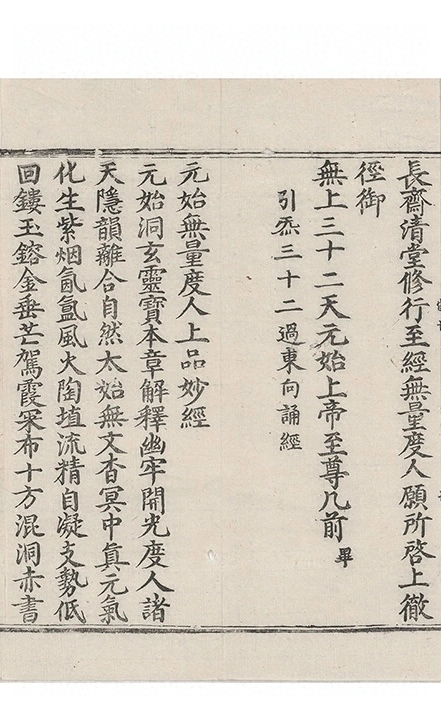 長齋清堂修行至經無量度人願所啓上徹
徑御
無上三十二天元始上帝至尊几前 畢
引炁三十二過東向誦經
元始無量度人上品妙經
元始洞玄靈寶本章解釋幽牢開光度人諸
天隱韻離合自然太始無文杳冥中真元氣
化生紫烟氤氳風火陶埴流精自凝支勢低
回鏤玉鎔金垂芒駕霞寀布十方混洞赤書